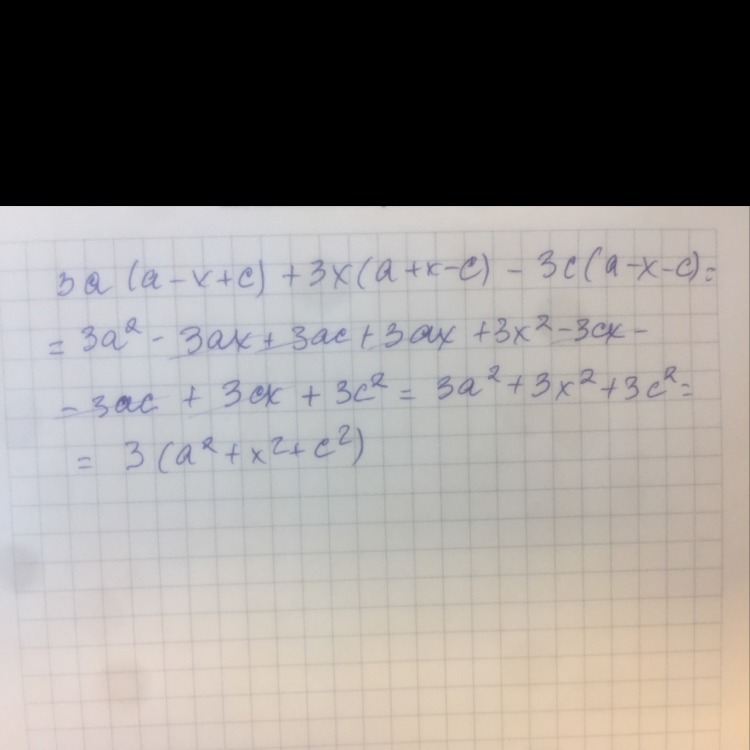 3a (a-x+c) + 3x(a+x-c) - 3c(a-x-c)=
= 3a² - 3ax + 3ac + 3ax + 3x² - 3cx -
- 3ac + 3cx + 3c² = 3a² + 3x² + 3c² =
= 3 (a² + x² + c²)